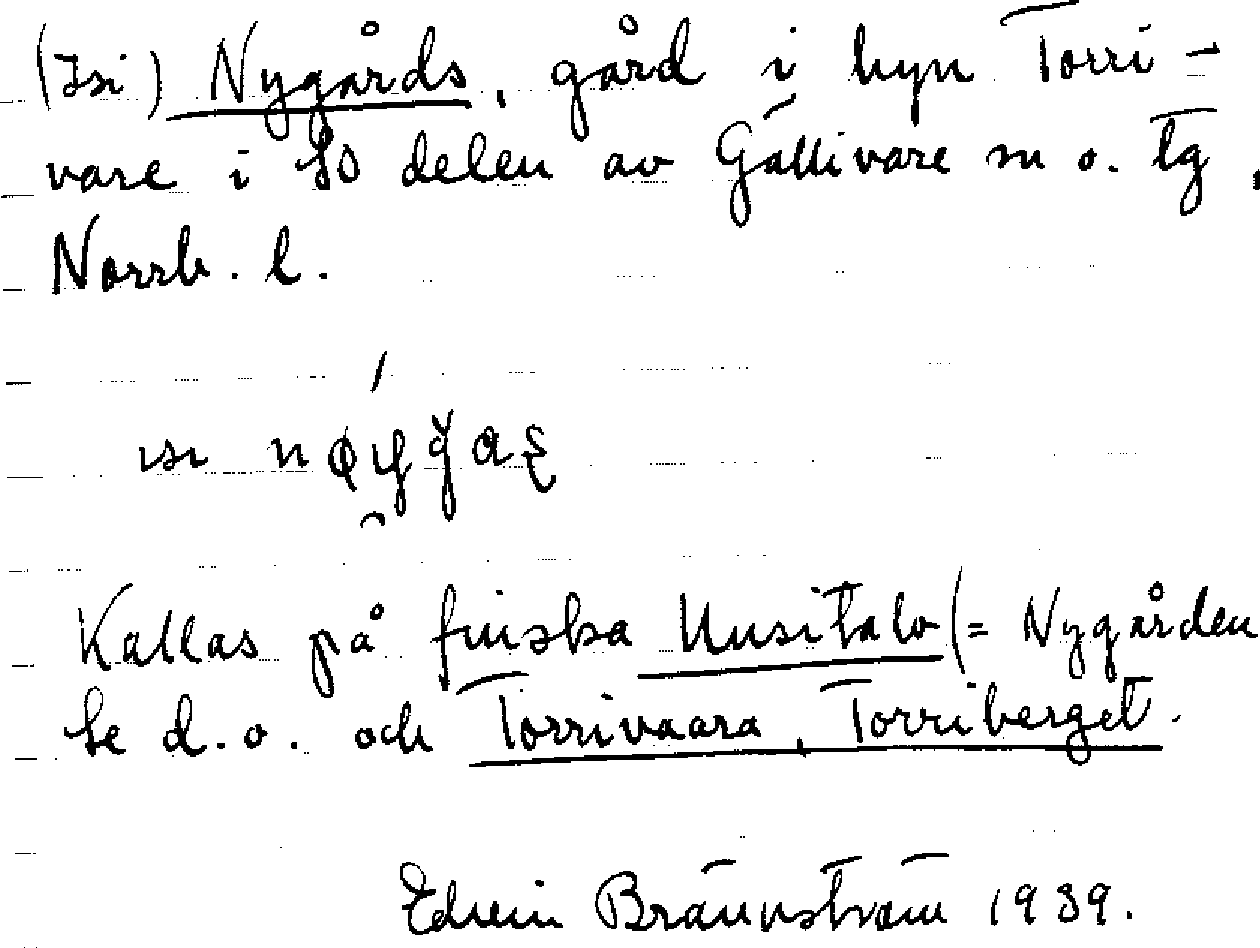 (Isi) Nygårds, gård i byn Torri-
vare i SO delen av Gällivare sn o. tg,
Norrb. l.
isi
Kallas på finska Uusitalo (= Nygården
Se d.o. och Torrivaara, Torriberget.
Edvin Brännström 1939.